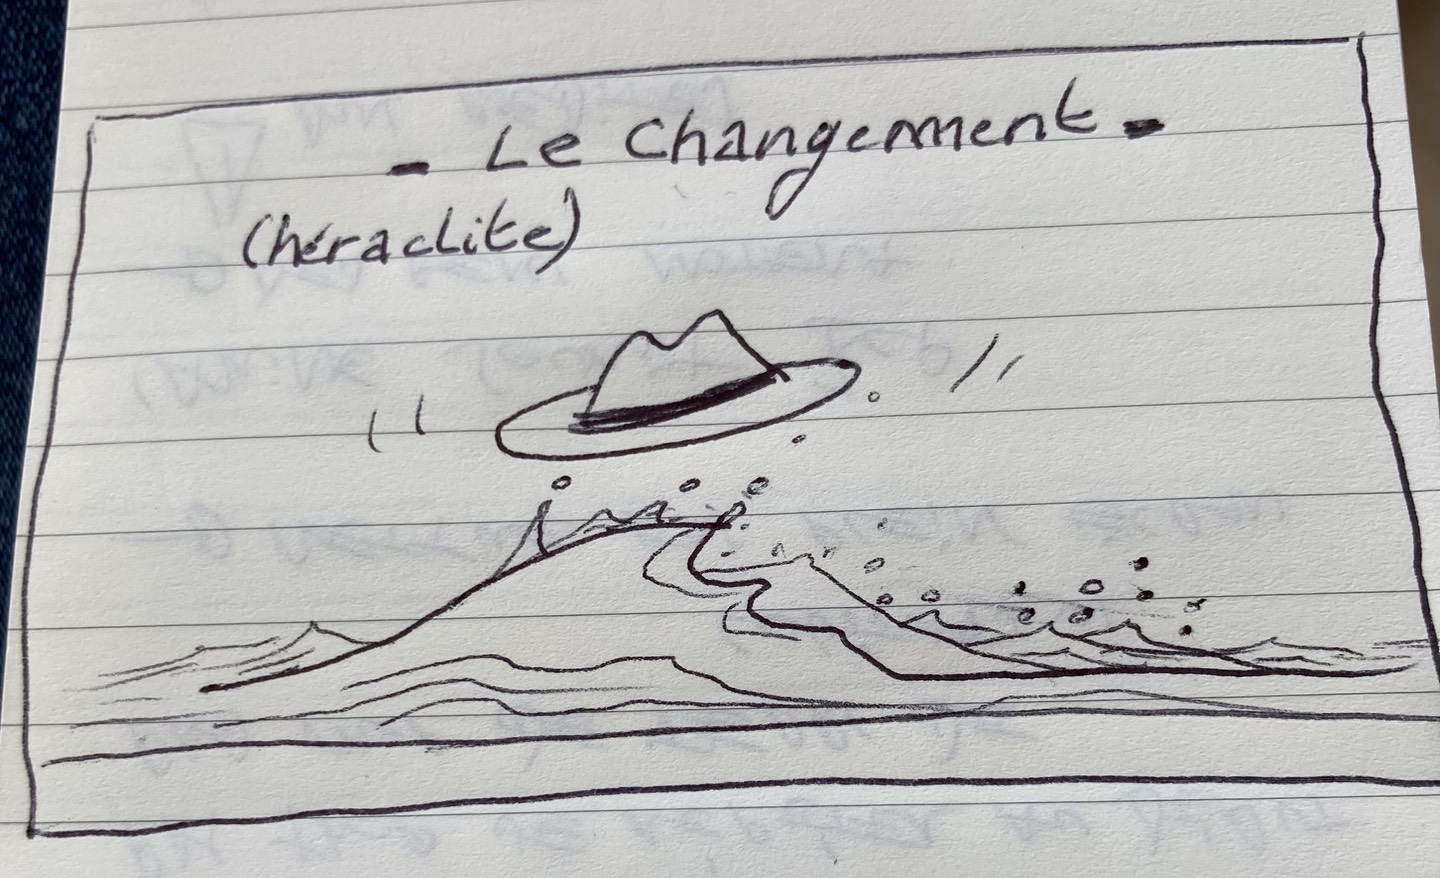 - Le Changement -
(héraclite)